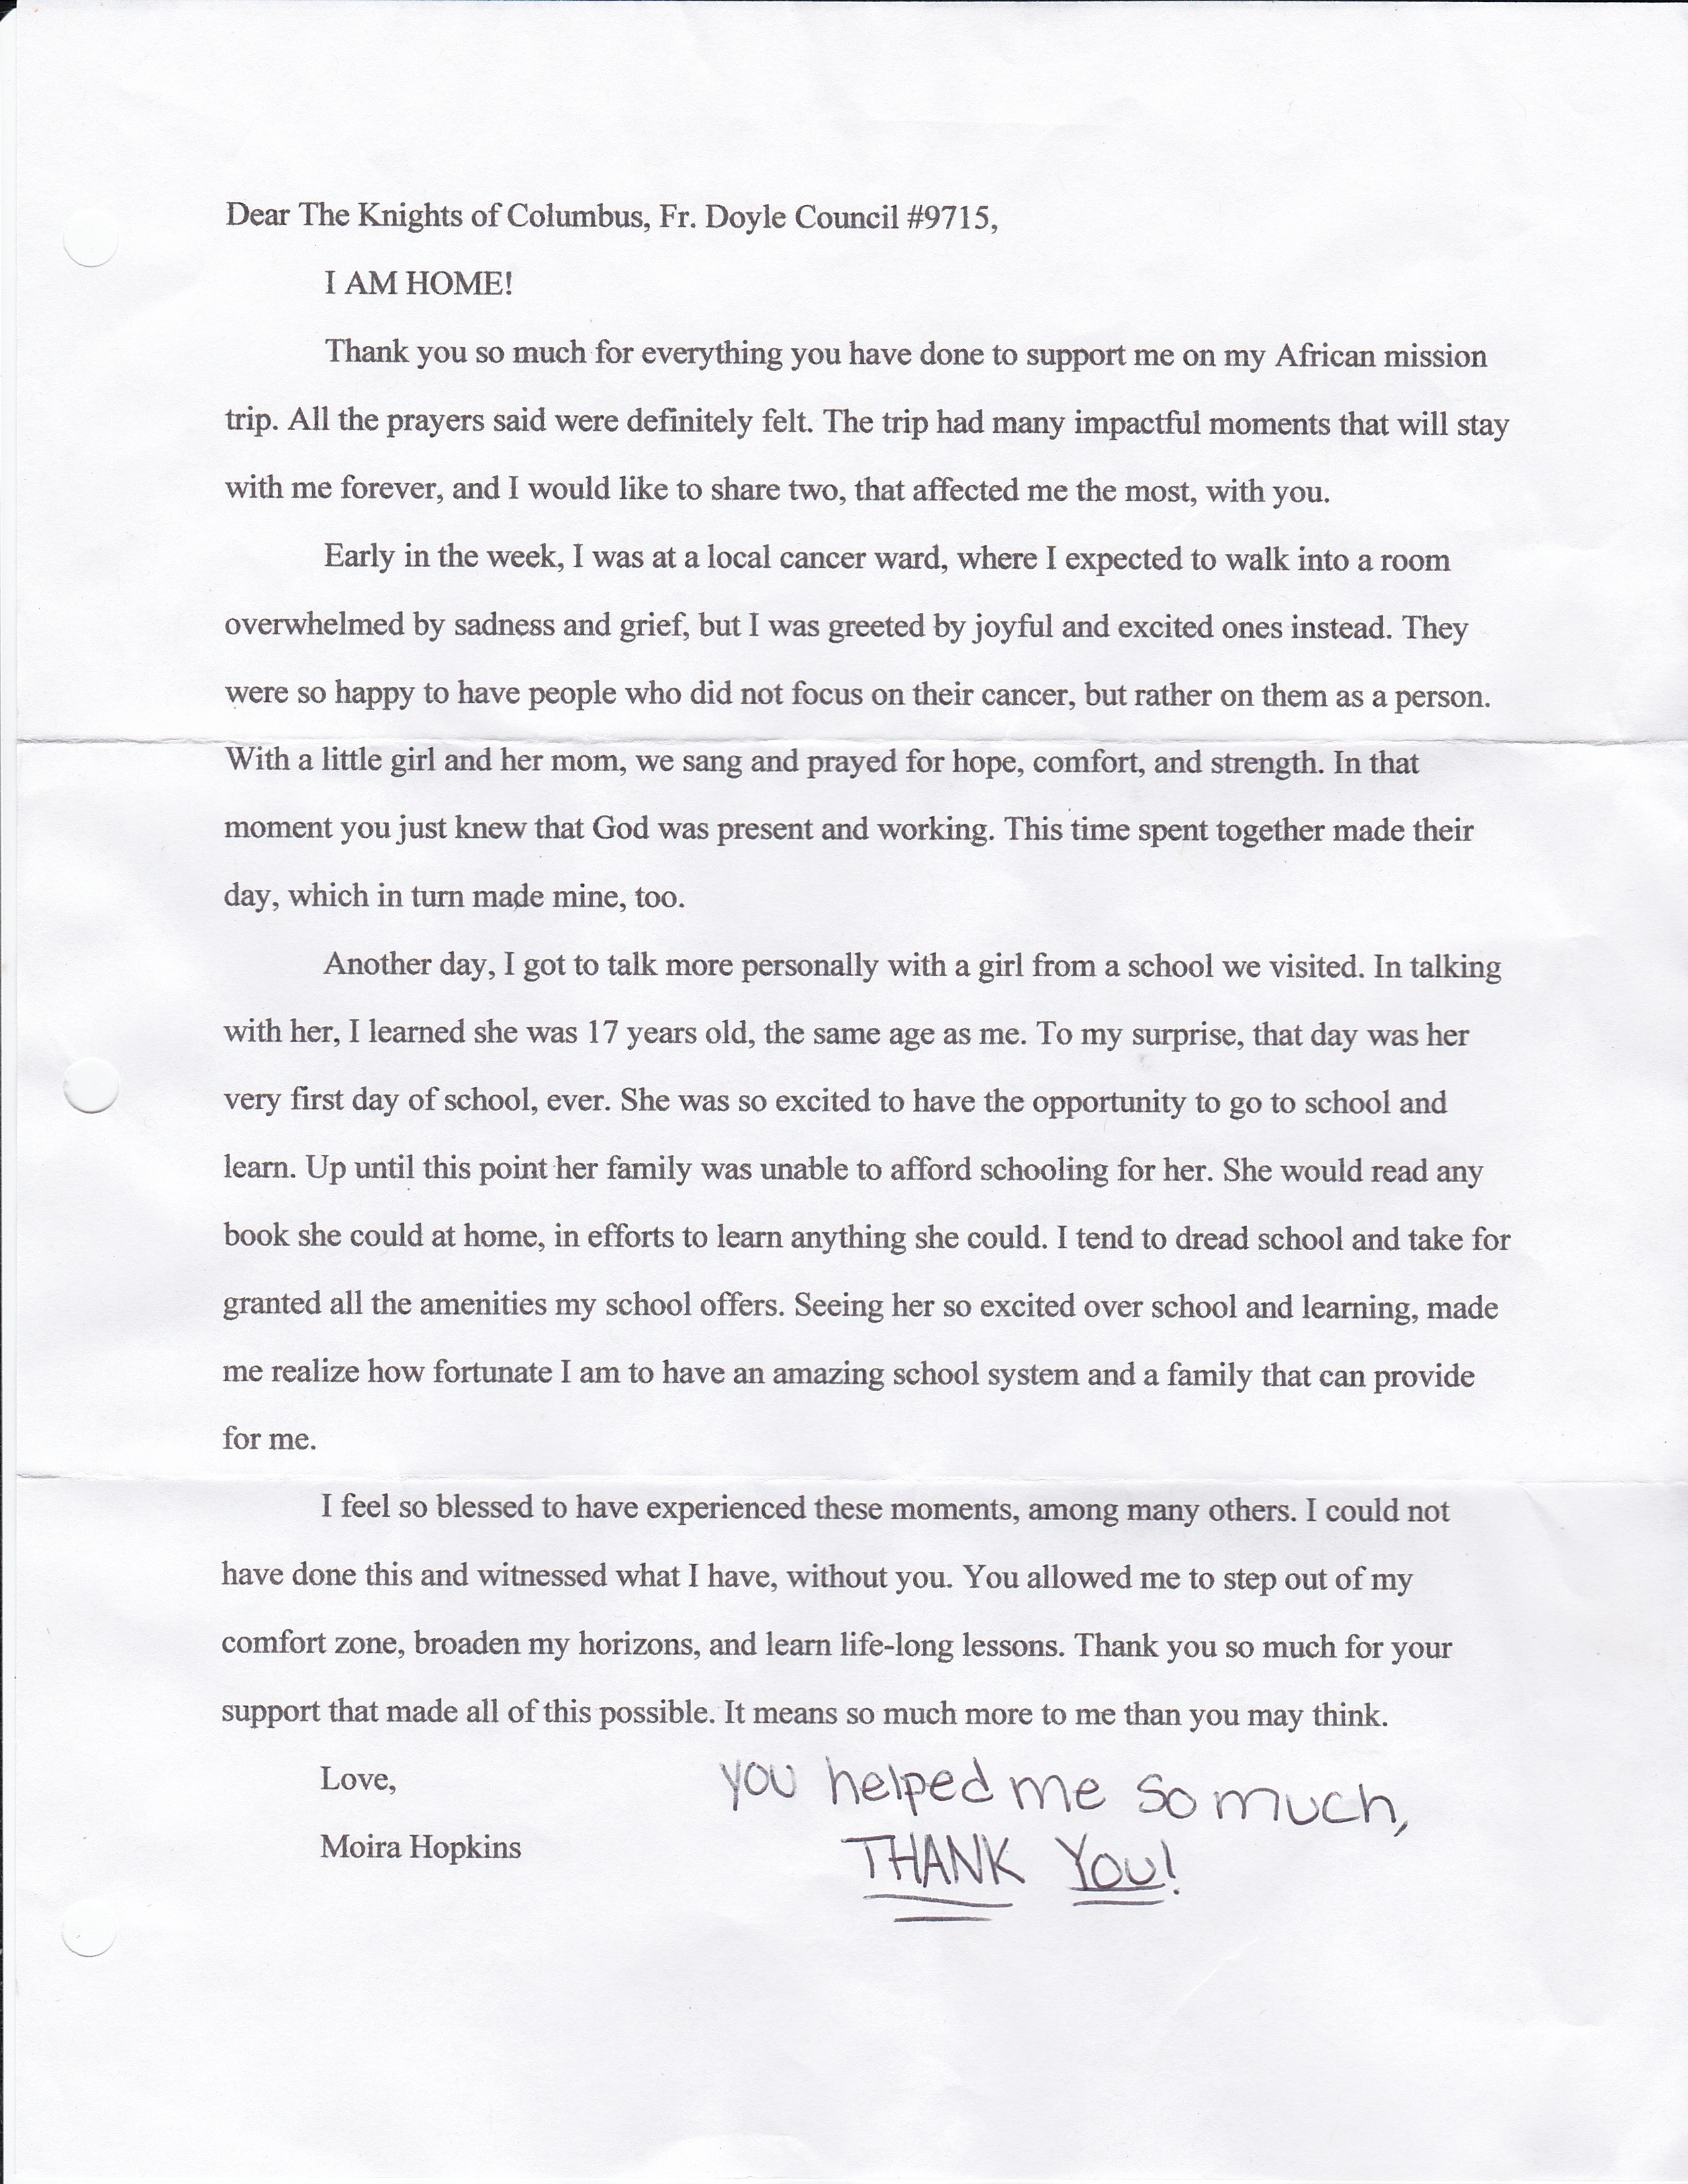 Dear The Knights of Columbus, Fr. Doyle Council #9715,
I AM HOME!
Thank you so much for everything you have done to support me on my African mission
trip. All the prayers said were definitely felt. The trip had many impactful moments that will stay
with me forever, and I would like to share two, that affected me the most, with you.
Early in the week, I was at a local cancer ward, where I expected to walk into a room
overwhelmed by sadness and grief, but I was greeted by joyful and excited ones instead. They
were so happy to have people who did not focus on their cancer, but rather on them as a person.
With a little girl and her mom, we sang and prayed for hope, comfort, and strength. In that
moment you just knew that God was present and working. This time spent together made their
day, which in turn made mine, too.
Another day, I got to talk more personally with a girl from a school we visited. In talking
with her, I learned she was 17 years old, the same age as me. To my surprise, that day was her
very first day of school, ever. She was so excited to have the opportunity to go to school and
learn. Up until this point her family was unable to afford schooling for her. She would read any
book she could at home, in efforts to learn anything she could. I tend to dread school and take for
granted all the amenities my school offers. Seeing her so excited over school and learning, made
me realize how fortunate I am to have an amazing school system and a family that can provide
for me.
I feel so blessed to have experienced these moments, among many others. I could not
have done this and witnessed what I have, without you. You allowed me to step out of my
comfort zone, broaden my horizons, and learn life-long lessons. Thank you so much for your
support that made all of this possible. It means so much more to me than you may think.
Love,
Moira Hopkins
you helped me so much,
THANK YOU!